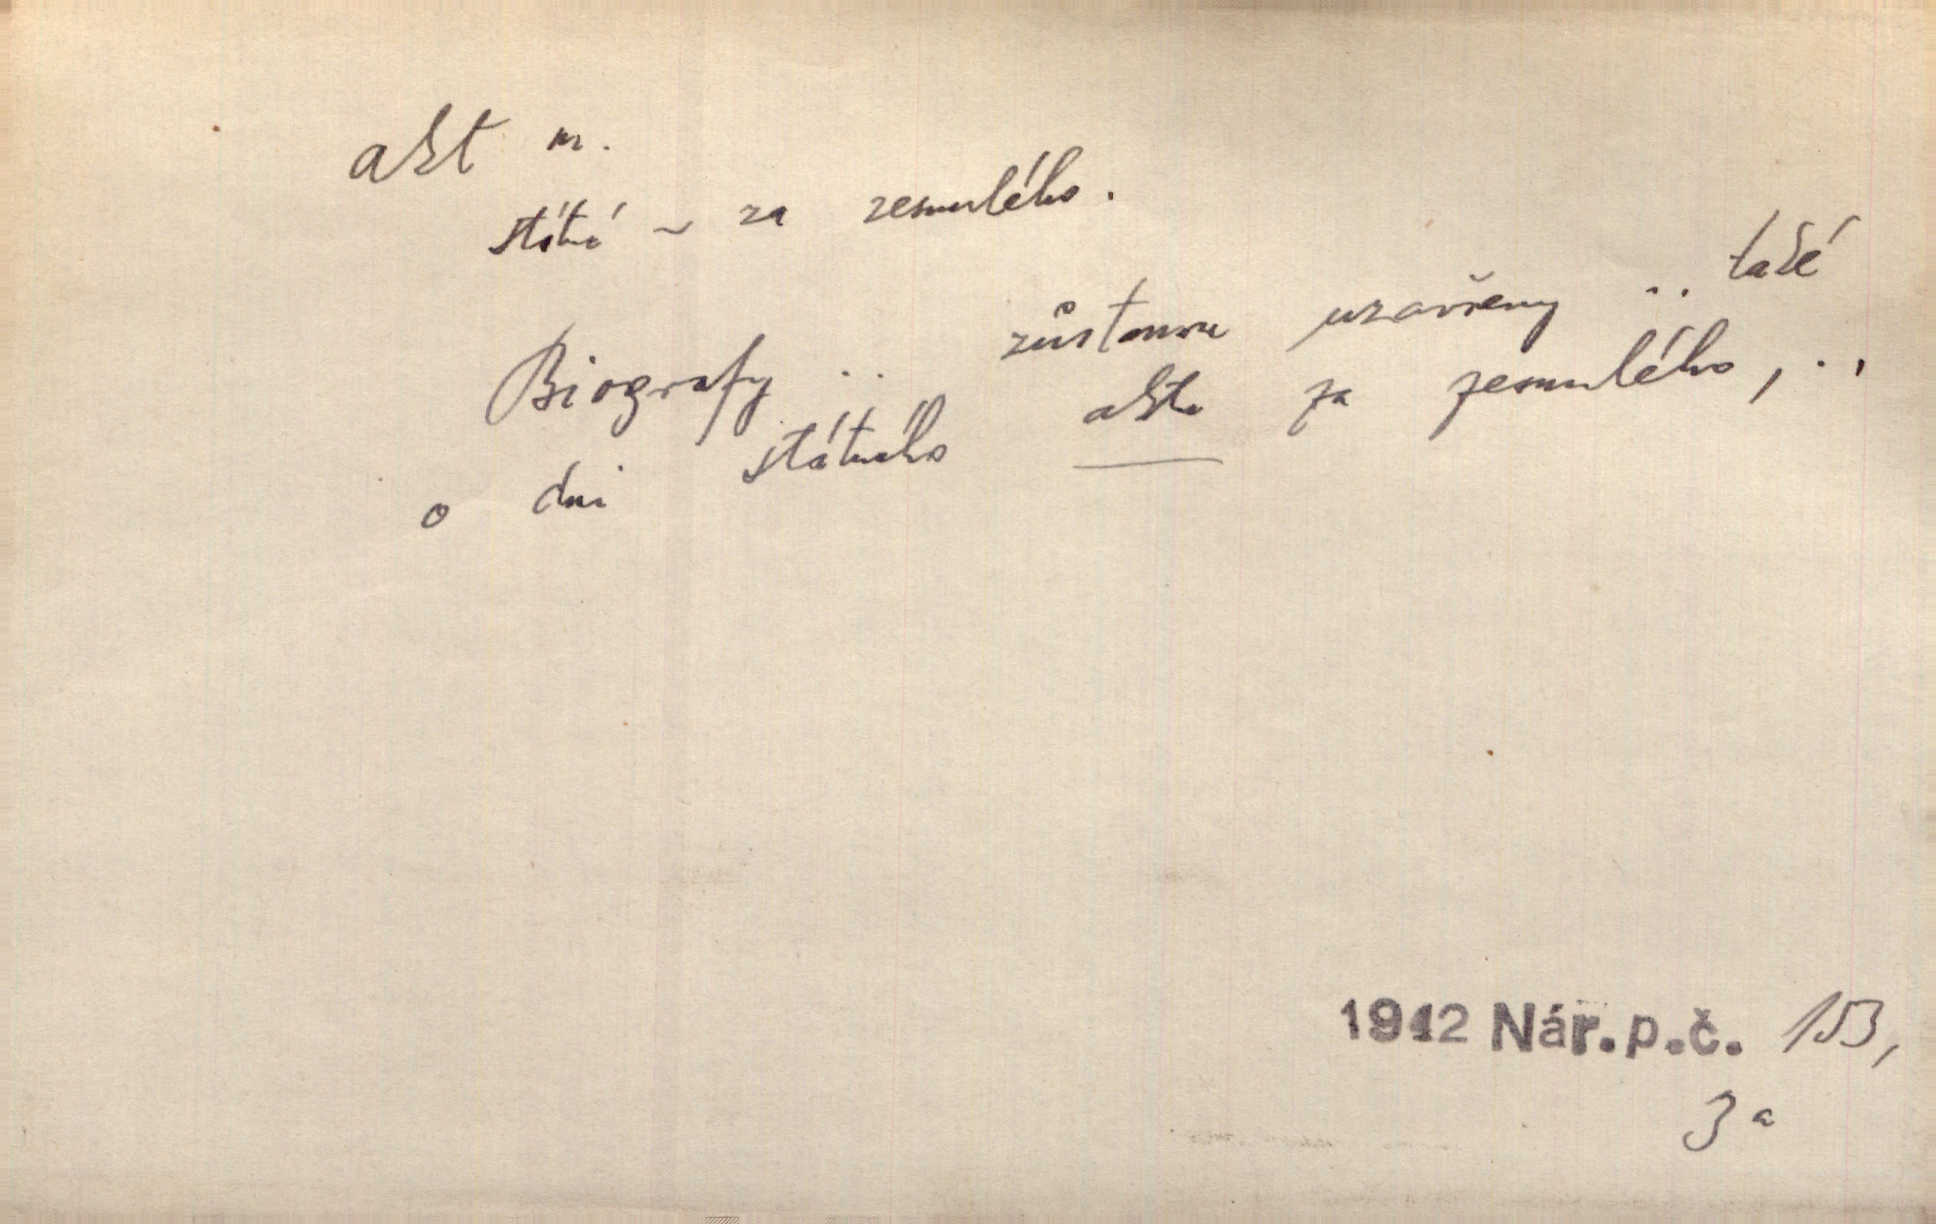 akt m.
státní ~ za zesnulého.
Biografy .. zůstanou uzavřeny .. také
o dni státního aktu za zesnulého, ..
1942 Nár.p.č. 153,
3a